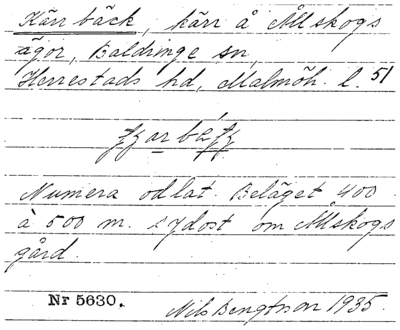 Kärrbäck, kärr å Ållskogs
ägor, Baldringe sn,
Herrestads hd, Malmöh. l. 51
Numera odlat. Beläget 400
à 500 m. sydost om Ållskogs
gård.
Nr 5630. Nils Bengtsson 1935.